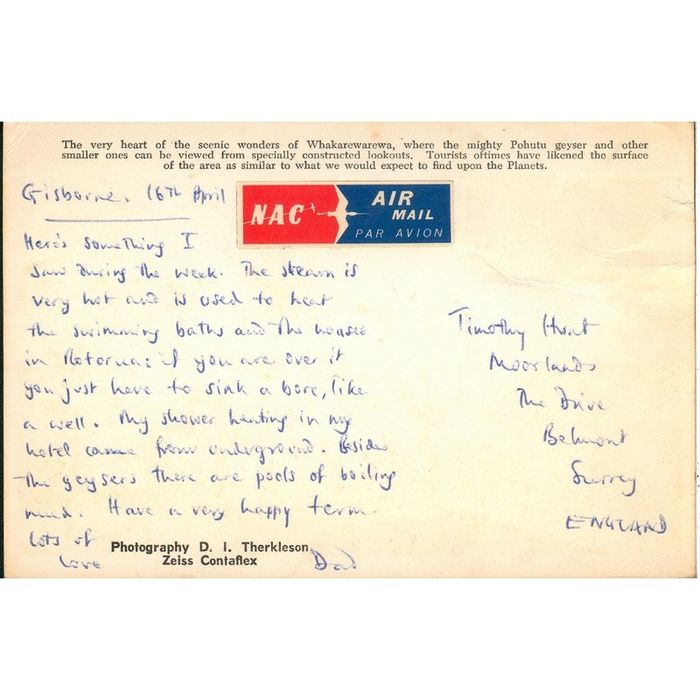 The very heart of the scenic wonders of Whakarewarewa, where the mighty Pohutu geyser and other
smaller ones can be viewed from specially constructed lookouts. Tourists oftimes have likened the surface
of the area as similar to what we would expect to find upon the Planets.
Gisborne. 16th April
NAC
AIR
MAIL
PAR AVION
Here's something I
saw during the week. The steam is
very hot and is used to heat
the swimming baths and the houses
in Rotorua: if you are over it
you just have to sink a bore, like
a well. My shower heating in my
hotel came from underground. Besides
the geysers there are pools of boiling
mud. Have a very happy term.
Lots of
love
Dad
Timothy
Moorlands
The Drive
Belmont
Surrey
ENGLAND
Photography D. I. Therkleson
Zeiss Contaflex